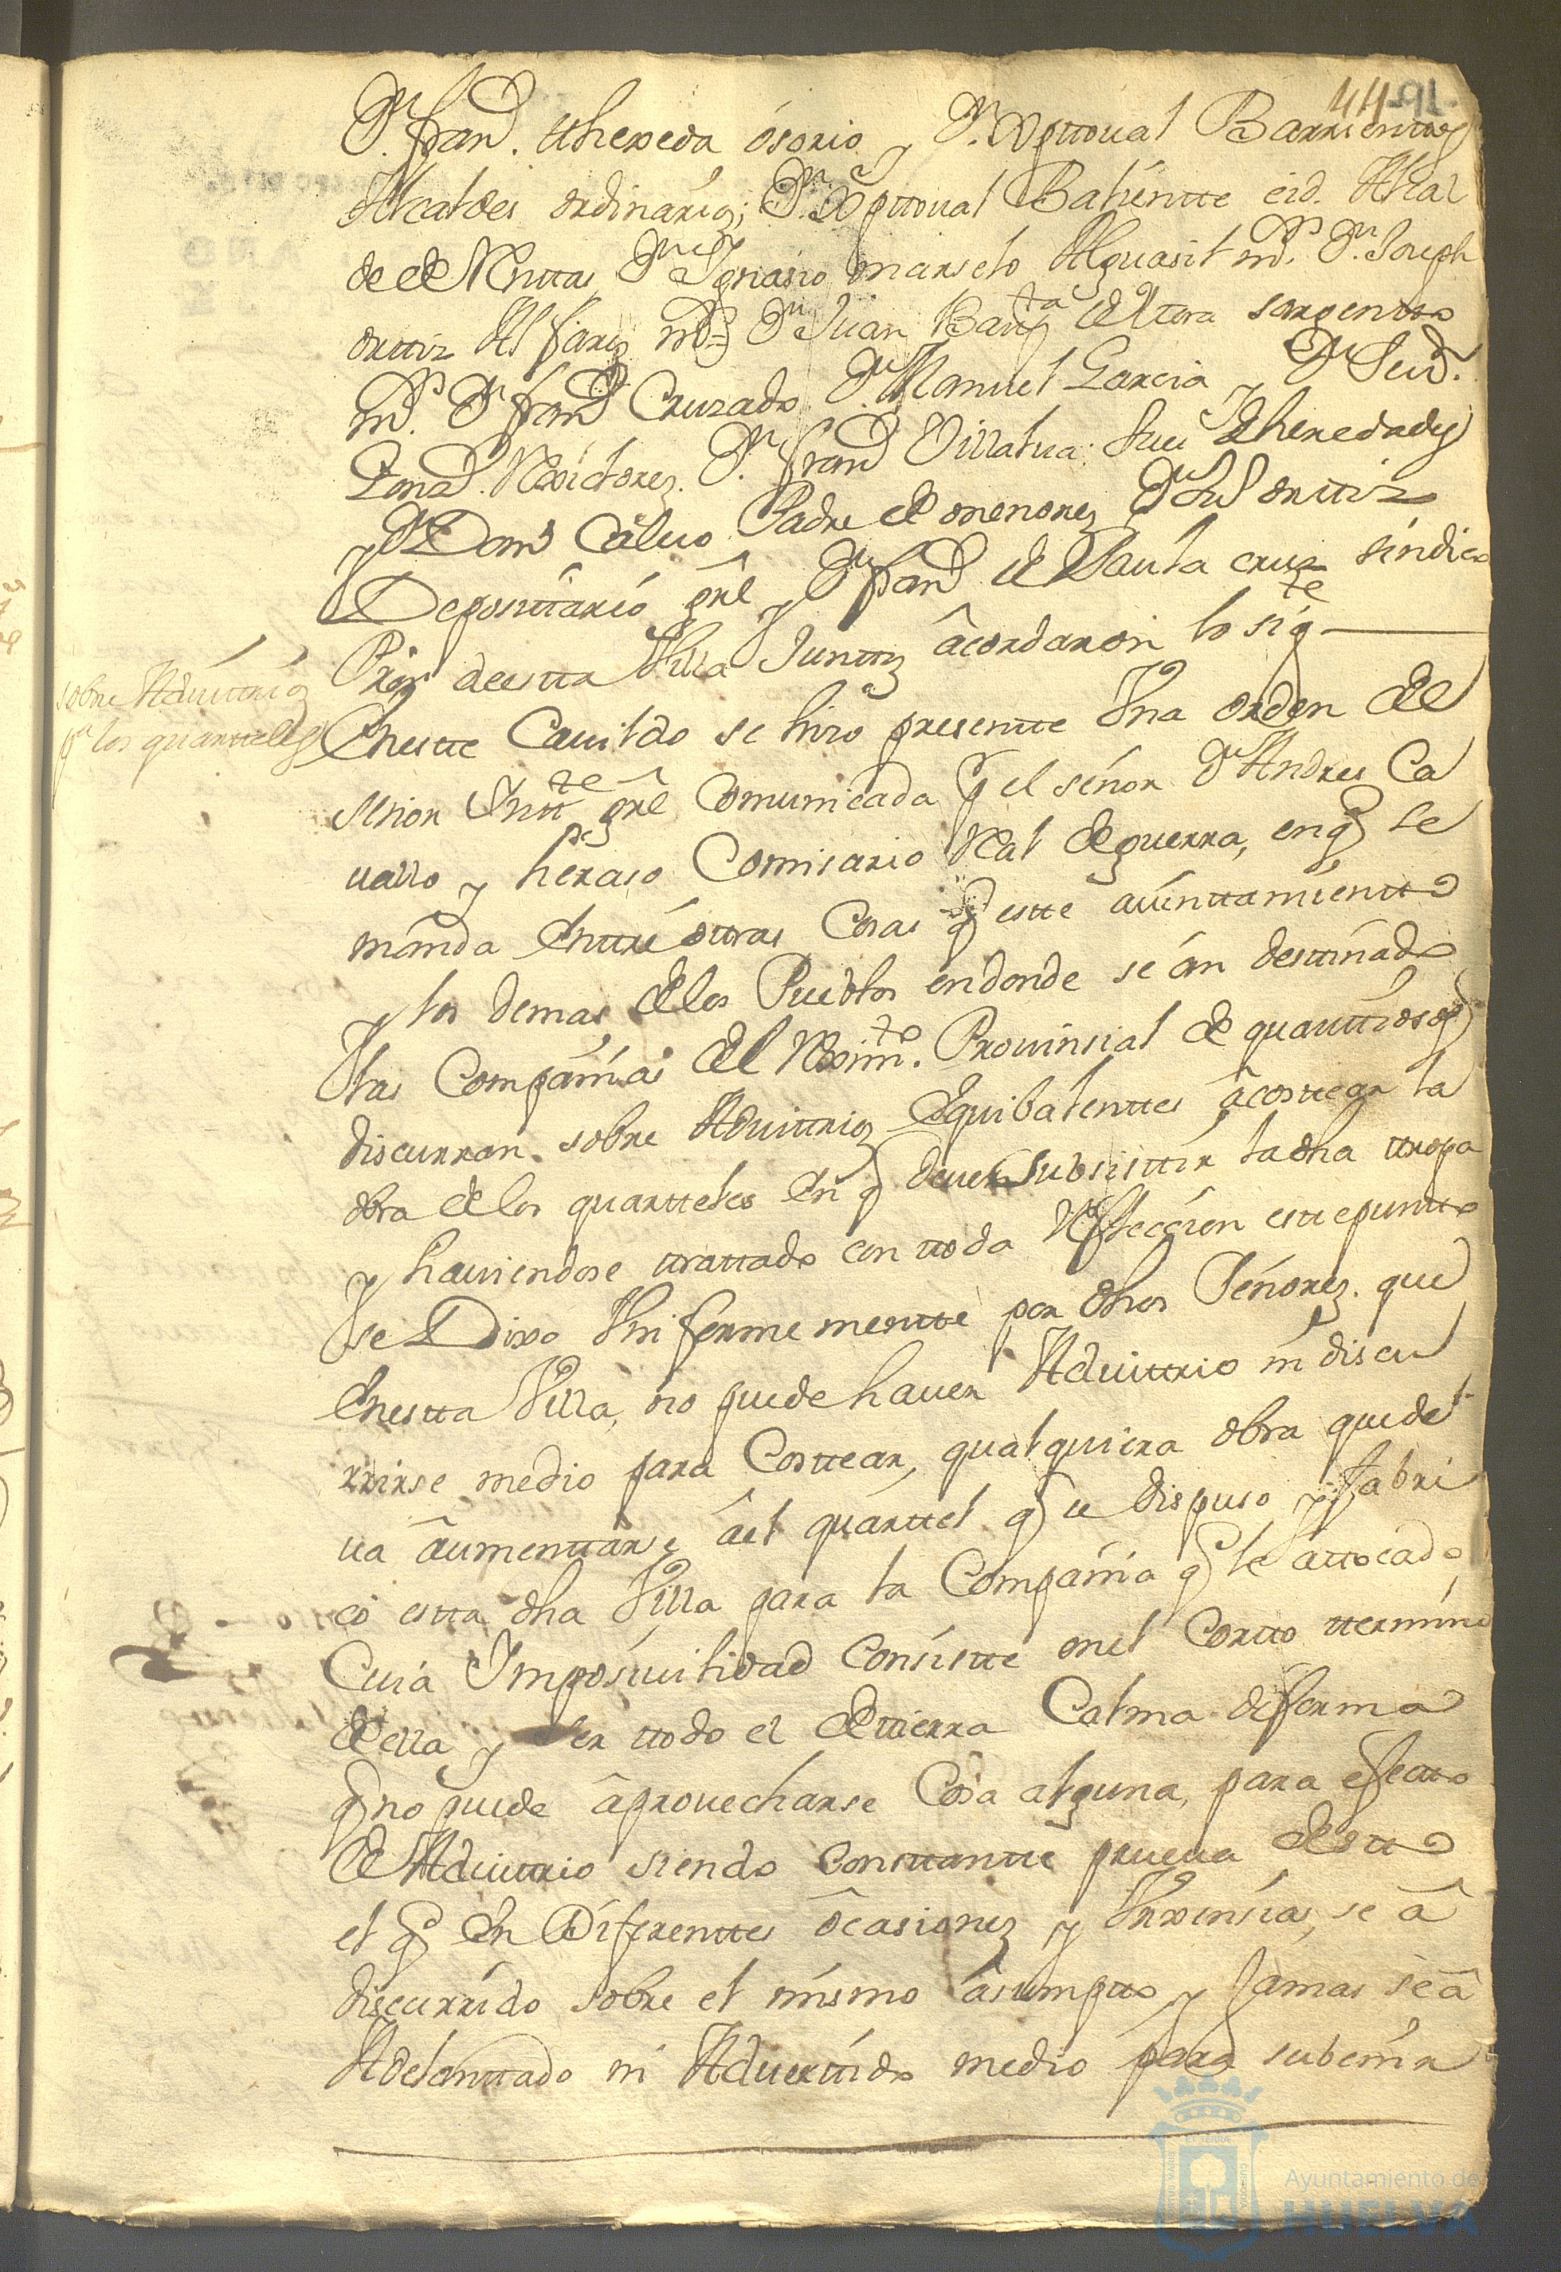 44 91
Dn. Franco. de heredia osorio y Dn. Xpttoual Barrientos
Alcaldes ordinarios; Dn. Xpttoual Balientte cid. Alcal
de de Millones Dn. Ygnasio marselo Alguasil mr. Dn. Joseph
orttiz Alfarez mr. Dn. Juan Bautta de Mora sargentto
mr. Dn. Franco Cruzado Dn. Manuel Garcia y Dn. Seun.
Gonz. Rexidores. Dn. Franco Villalua Juez de heredades
y Dn. Domo Caluo Padre de menores Dn. Juo orttiz
Deposittario grl y Dn. Franco de Paula cruz síndico
Pror de estta Villa Junttos acordaron lo sigte
sobre Aduittrios
pa los quartteles
Enestte Cauildo se hizo presentte Vna orden del
señor Yntte grl Comunicada p el señor Dn Andres Ca
uallo y heraso Comisario Real de guerra, en q se
manda Enttre ottras Cosas q estte aiunttamientto
y los demas de los Pueblos en donde se an desttinado
las Compañias del Reximto. Prouinsial de quanttiosos
discurran sobre Aduittrios Equibalenttes a costtear la
obra de los quartteles en q deuen subsisttir la dha ttropa
y hauiendose ttrattado con ttoda Reflección estte puntto
se Dixo Vniformementte por dhos Señores. que
Enestta Villa, no puede hauer Aduittrio ni discu
rrirse medio para Costtear, qualquiera obra que de
ua aumenttarse al quarttel q se dispuso y fabri
có estta dha Villa para la Compañia q le attocado,
Cuia Ymposiuilidad consistte en el Cortto ttermino
de ella y ser ttodo el de ttierra Calma de forma
q no puede aprouecharse Cosa alguna, para efectto
de Aduittrio siendo consttantte prueua de estto
el q en Diferenttes ocasiones y Vrxensias, se a
discurrido sobre el mismo asumptto y Jamas se a
Adelanttado ni Aduerttido medio para subenir
Ayuntamiento de
HUELVA